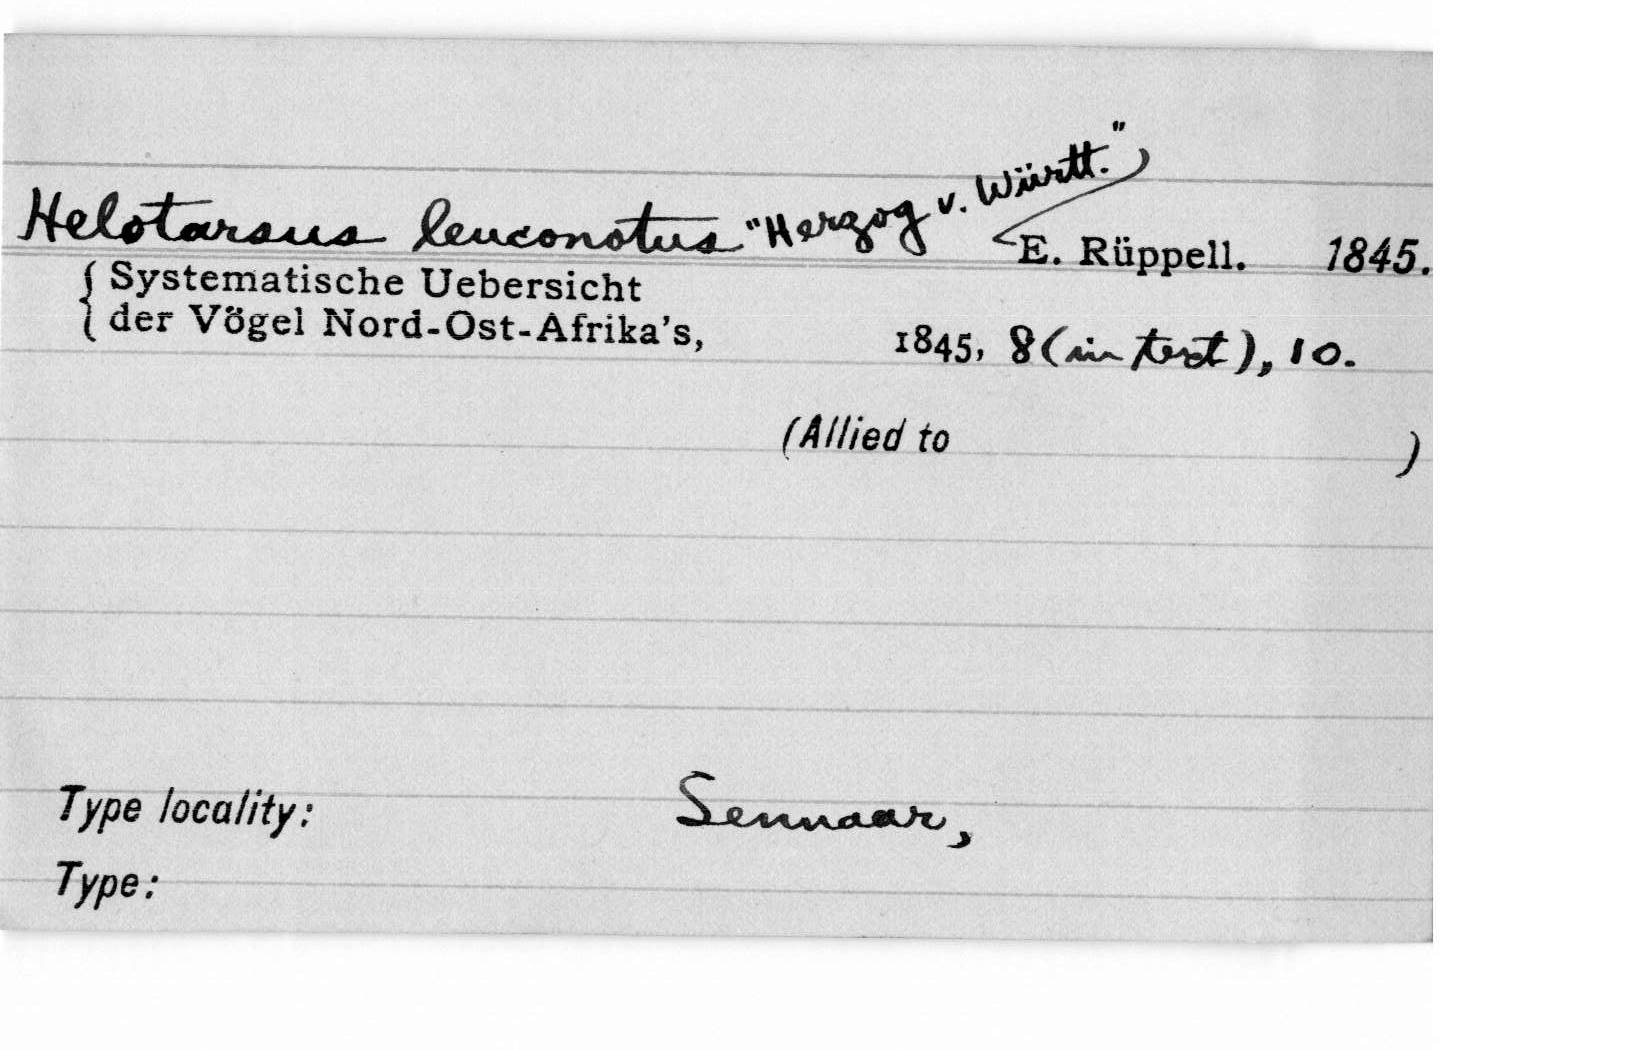 Helotarsus leuconotus "Herzog v. Württ." E. Rüppell. 1845.
Systematische Uebersicht
der Vögel Nord-Ost-Afrika's, 1845, 8 (in text), 10.
(Allied to )
Type locality: Sennaar,
Type: